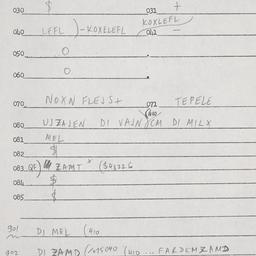 030 $ 031 +
040 LEFL )-KOXELEFL 041 KOXLEFL -
050 O
060 O
070 NOXN FLEJS+ 071 TEPELE
080 UJZAJEN DI VAJN CM DI MILX
081 MEL
082 $
083 ZAMT
084 $
085 $
901 DI MEL (410
902 DI ZAMD (410 ... FARDEMZAMD